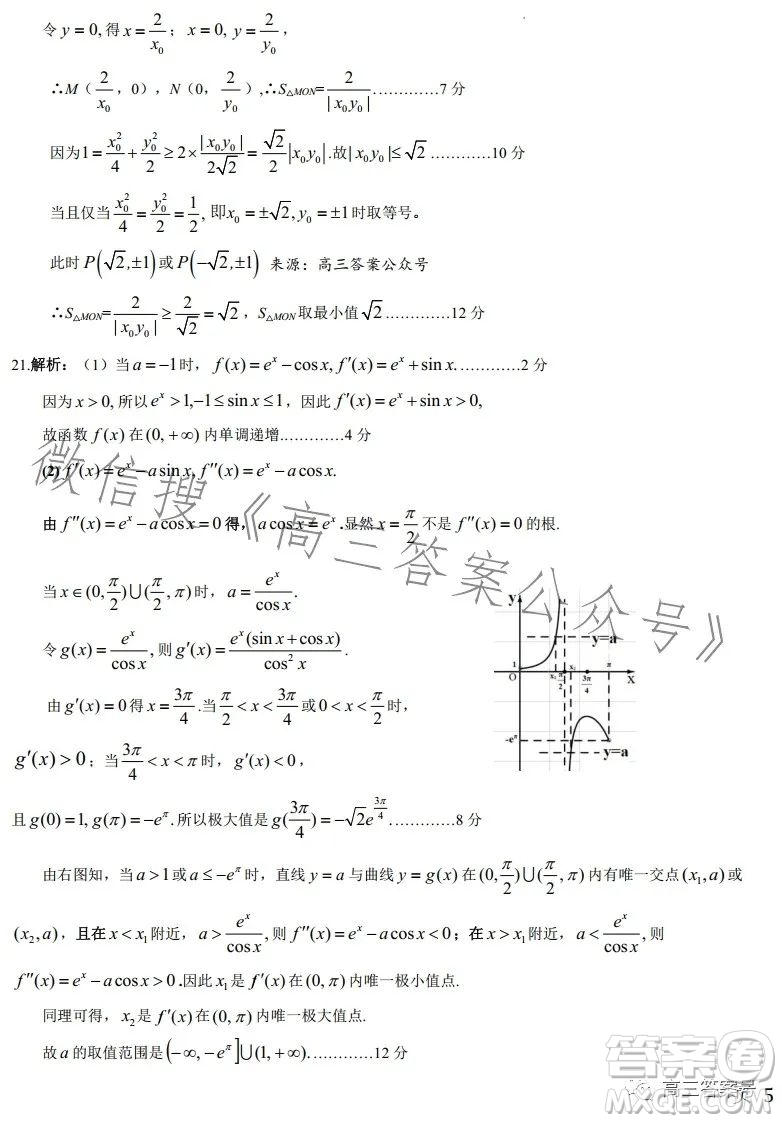 令 y = 0, 得 x = 2/x₀ ； x = 0, y = 2/y₀ ，
∴M（2/x₀，0），N（0，2/y₀）,∴S△MON=2/|x₀y₀|.…………7 分
因为1 = x₀²/4 + y₀²/2 ≥ 2 × |x₀y₀|/(2√2) = (√2/2)|x₀y₀| .故| x₀y₀ |≤ √2 …………10 分
当且仅当 x₀²/4 = y₀²/2 = 1/2, 即x₀ = ±√2, y₀ = ±1 时取等号。
此时 P(√2,±1) 或 P(−√2,±1) 来源：高三答案公众号
∴S△MON=2/|x₀y₀| ≥ 2/√2 = √2 ，S△MON 取最小值 √2 …………12 分
21.解析：（1）当 a = −1 时， f(x) = eˣ − cos x, f′(x) = eˣ + sin x.…………2 分
因为 x > 0, 所以 eˣ > 1,−1 ≤ sin x ≤ 1，因此 f′(x) = eˣ + sin x > 0,
故函数 f(x) 在 (0, +∞) 内单调递增…………4 分
(2) f′(x) = eˣ − a sin x, f″(x) = eˣ − a cos x.
由 f″(x) = eˣ − a cos x = 0 得，a cos x = eˣ .显然 x = π/2 不是 f″(x) = 0 的根.
当 x ∈ (0, π/2) ∪ (π/2, π) 时， a = eˣ/cos x.
令 g(x) = eˣ/cos x, 则 g′(x) = eˣ(sin x + cos x)/cos² x.
由 g′(x) = 0 得 x = 3π/4 .当 π/2 < x < 3π/4 或 0 < x < π/2 时，
g′(x) > 0；当 3π/4 < x < π 时，g′(x) < 0，
y
y=a
1
O
x₁
π/2
x₂
3π/4
π
X
-e^π
y=a
且 g(0) = 1, g(π) = −e^π . 所以极大值是 g(3π/4) = −√2e^(3π/4) …………8 分
由右图知，当 a > 1 或 a ≤ −e^π 时，直线 y = a 与曲线 y = g(x) 在 (0, π/2) ∪ (π/2, π) 内有唯一交点 (x₁, a) 或
(x₂, a)，且在 x < x₁ 附近， a > eˣ/cos x, 则 f″(x) = eˣ − a cos x < 0；在 x > x₁ 附近， a < eˣ/cos x, 则
f″(x) = eˣ − a cos x > 0 .因此 x₁ 是 f′(x) 在 (0, π) 内唯一极小值点.
同理可得，x₂ 是 f′(x) 在 (0, π) 内唯一极大值点.
故 a 的取值范围是 (−∞, −e^π] ∪ (1, +∞). …………12 分
微信搜《高三答案公众号》
答案卷
高三答案号
MXQE.COM
5